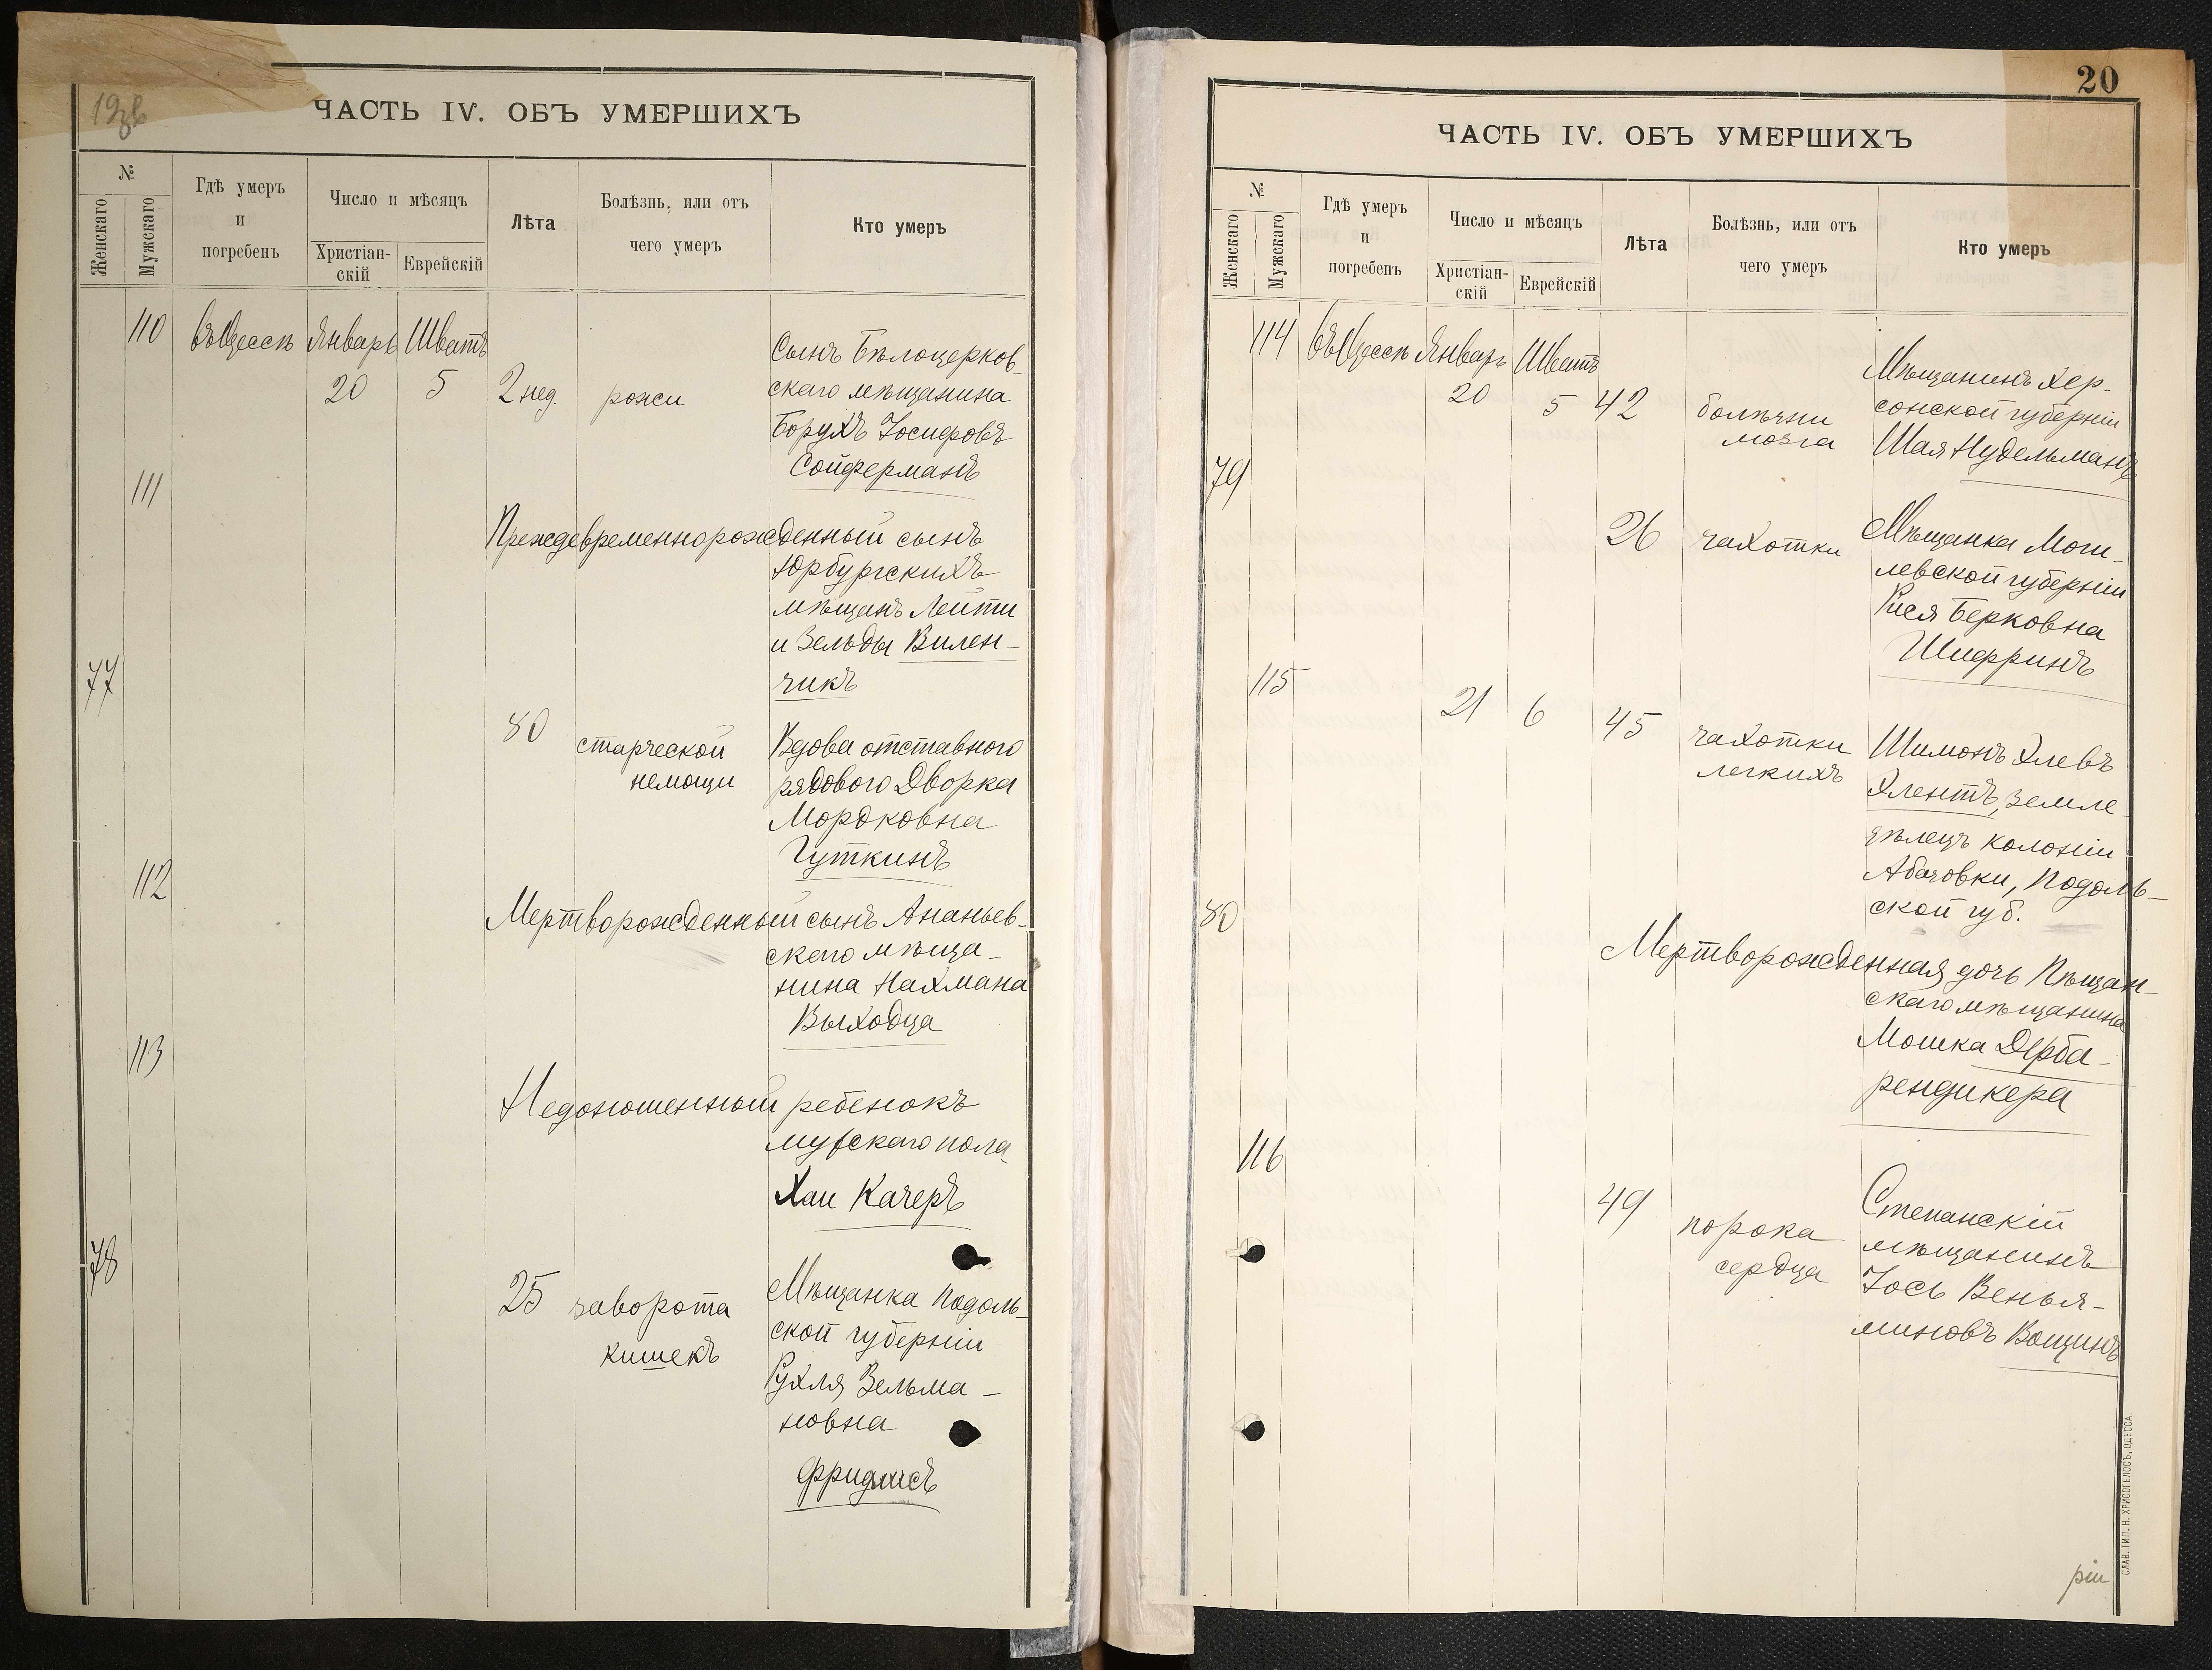 ЧАСТЬ IV. ОБЪ УМЕРШИХЪ
№
Женскаго
Мужскаго
Гдѣ умеръ
и
погребенъ
Число и мѣсяцъ
Христіан-
скій
Еврейскій
Лѣта
Болѣзнь, или отъ
чего умеръ
Кто умеръ
110 въ Одессѣ Январь Шватъ
20 5 2 нед. рожи
Сынъ Бѣлоцерков-
скаго мѣщанина
Борухъ Іосифовъ
Сойферманъ
111
Преждевременнорожденный сынъ
Юрбургскихъ
мѣщанъ Лейти
и Зельды Вилен-
чикъ
77
80 старческой
немощи
Вдова отставного
рядового Дворка
Мордковна
Гуткинъ
112
Мертворожденный сынъ Ананьев-
скаго мѣща-
нина Нахмана
Выходца
113
Недоношенный ребенокъ
мужскаго пола
Хаи Качеръ
78
25 заворота
кишекъ
Мѣщанка Подоль-
ской губерніи
Рухля Зельма-
новна
Фридлисъ
20
ЧАСТЬ IV. ОБЪ УМЕРШИХЪ
№
Женскаго
Мужскаго
Гдѣ умеръ
и
погребенъ
Число и мѣсяцъ
Христіан-
скій
Еврейскій
Лѣта
Болѣзнь, или отъ
чего умеръ
Кто умеръ
114 въ Одессѣ Январь Шватъ
20 5 42 болѣзни
мозга
Мѣщанинъ Хер-
сонской губерніи
Шая Нудельманъ
79
26 чахотки
Мѣщанка Моги-
левской губерніи
Рися Берковна
Шифринъ
115
21 6 45 чахотки
легкихъ
Шимонъ Хлевъ
Хлентъ, земле-
дѣлецъ колоніи
Абазовки, Подоль-
ской губ.
80
Мертворожденная дочь Пѣщан-
скаго мѣщанина
Мошка Дерба-
рендикера
116
49 порока
сердца
Степанскій
мѣщанинъ
Іось Венья-
миновъ Вощинъ
ріи
СЛАВ. ТИП. Н. ХРИСОГЕЛОСЪ, ОДЕССА.